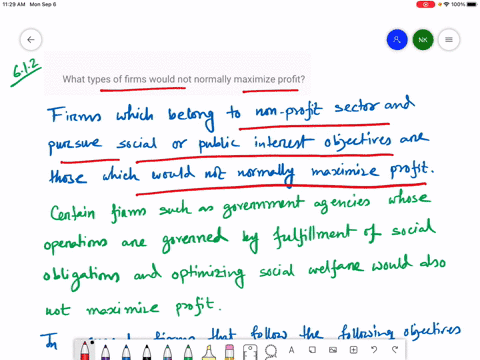 11:29 AM Mon Sep 6
100%
NK
6.1.2
What types of firms would not normally maximize profit?
Firms which belong to non-profit sector and
pursue social or public interest objectives are
those which would not normally maximize profit.
Certain firms such as government agencies whose
operations are governed by fulfillment of social
obligations and optimizing social welfare would also
not maximize profit.
firms that follow the following objectives
A